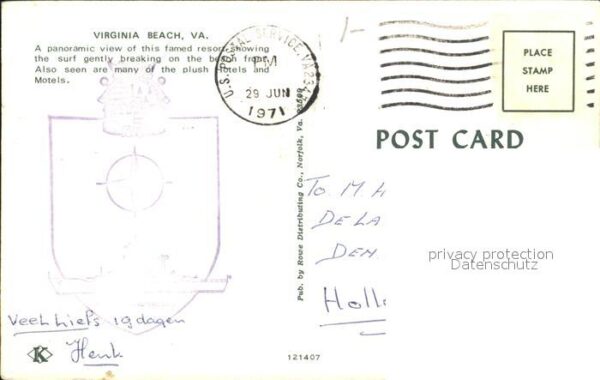 VIRGINIA BEACH, VA.
A panoramic view of this famed resort showing
the surf gently breaking on the beach front.
Also seen are many of the plush Hotels and
Motels.
U.S. POSTAL SERVICE, VA
PM
29 JUN
1971
PLACE
STAMP
HERE
POST CARD
Pub. by Rowe Distributing Co., Norfolk, Va.
To. M
DE LA
DEN
Holl
privacy protection
Datenschutz
Veel liefs 19 dagen
Henk
K
121407